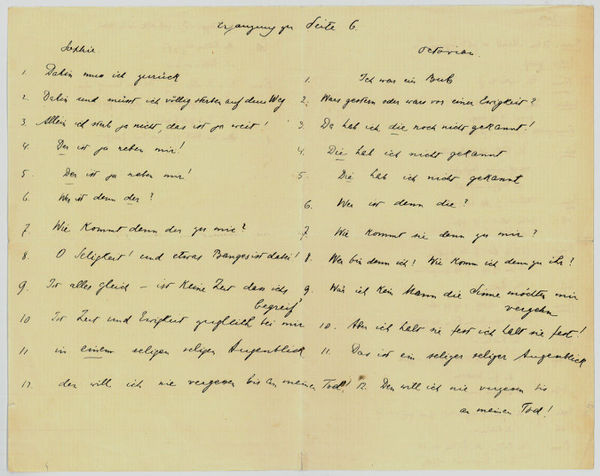 Ergänzung zu Seite 6.
Sophie
1. Dahin muss ich zurück
2. Dahin und müsst ich völlig sterben auf dem Weg
3. Allein ich sterb ja nicht, das ist ja weit!
4. Der ist ja neben mir!
5. Der ist ja neben mir!
6. Wer ist denn der?
7. Wie kommt denn der zu mir?
8. O Seligkeit! und etwas Banges ist dabei!
9. Ist alles gleich – ist keine Zeit dass ichs
begreif!
10 Ist Zeit und Ewigkeit zugleich bei mir
11 in einem seligen seligen Augenblick
12. den will ich nie vergessen bis an meinen Tod!
Octavian.
1. Ich war ein Bub
2. Wars gestern oder wars vor einer Ewigkeit?
3. Da hab ich die noch nicht gekannt!
4. Die hab ich nicht gekannt
5. Die hab ich nicht gekannt
6. Wer ist denn die?
7. Wie kommt sie denn zu mir?
8. Wer bin denn ich! Wie komm ich denn zu ihr!
9. Wär ich kein Mann die Sinne möchten mir
vergehn
10. Aber ich halt sie fest ich halt sie fest!
11. Das ist ein seliger seliger Augenblick
12. Den will ich nie vergessen bis
an meinen Tod!